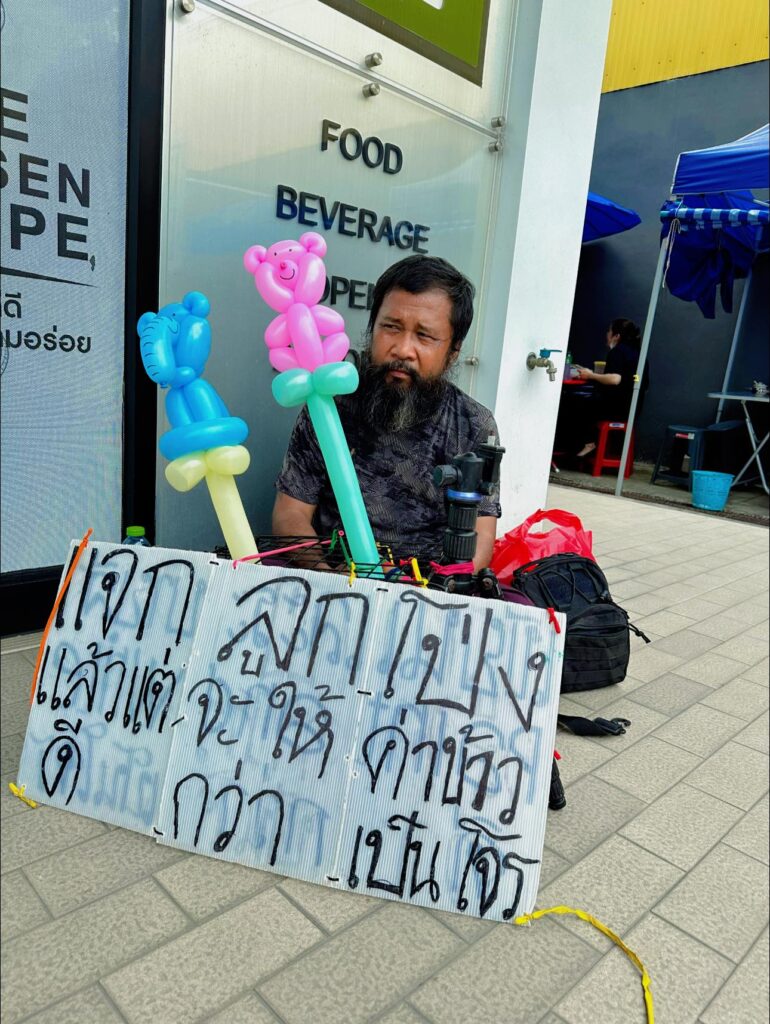 E
SEN
PE
ดี
มอร่อย
FOOD
BEVERAGE
OPE
แจก ลูก โป่ง
แล้วแต่ จะ ให้ ค่าข้าว
ดี กว่า เป็น โจร